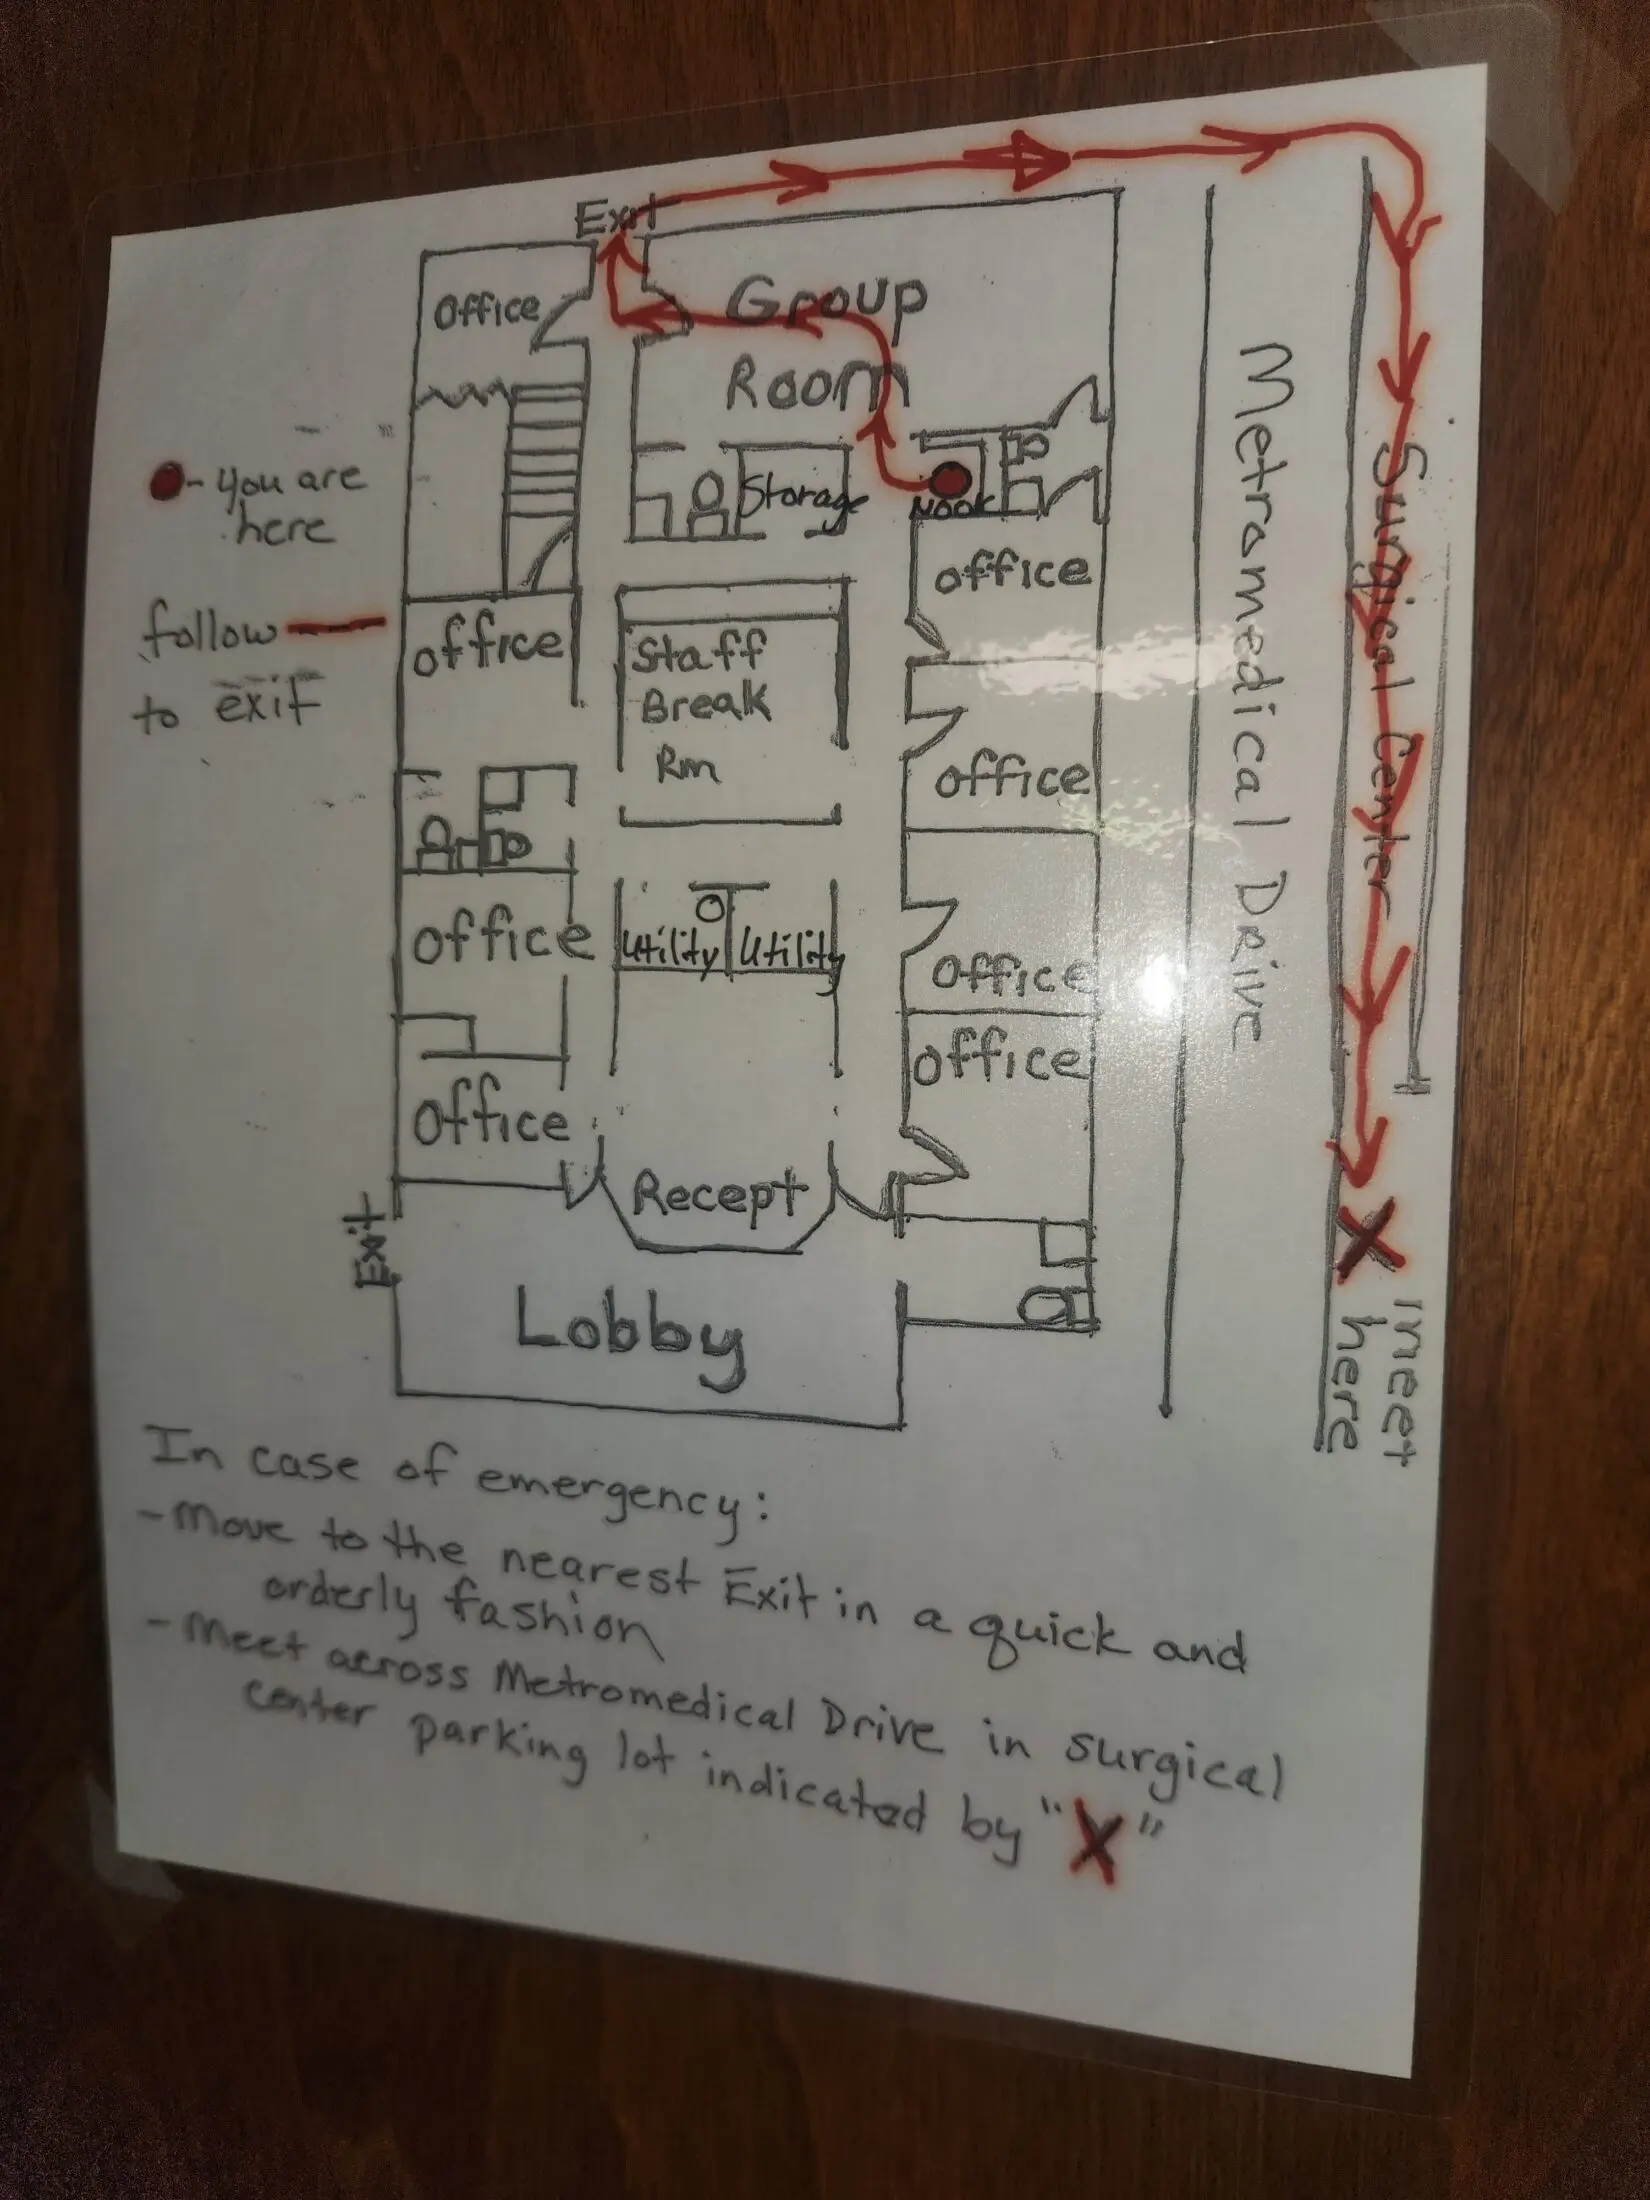 Exit
Office
Group
Room
Storage
Nook
- you are
here
follow
to exit
office
office
Staff
Break
Rm
office
office
Utility
Utility
Office
office
Office
Recept
Exit
Lobby
Metromedical Drive
Surgical Center
meet
here
In case of emergency:
- Move to the nearest Exit in a quick and
orderly fashion
- Meet across Metromedical Drive in surgical
center parking lot indicated by "X"